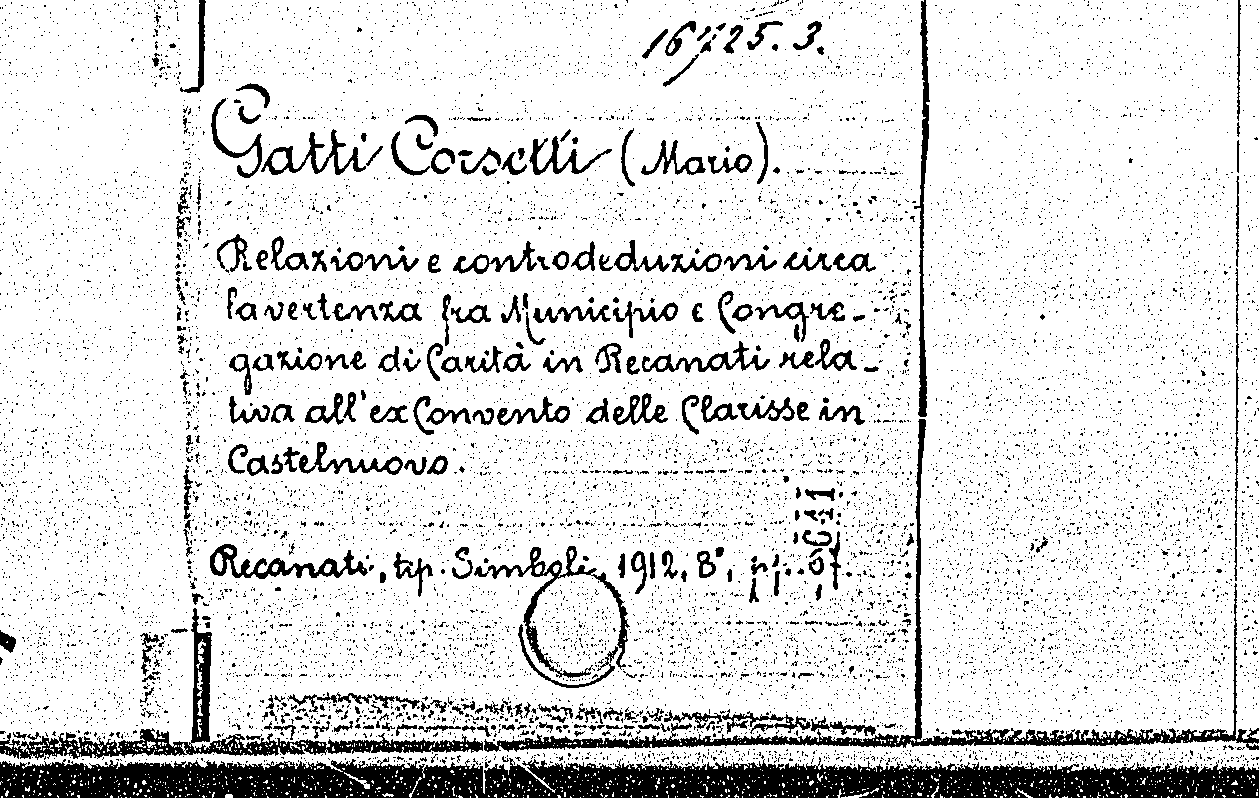 16725. 3.
Gatti Corselli (Mario).
Relazioni e controdeduzioni circa
la vertenza fra Municipio e Congre-
gazione di Carità in Recanati rela-
tiva all'ex Convento delle Clarisse in
Castelnuovo.
Recanati, tip. Simboli, 1912, 8°, pp.